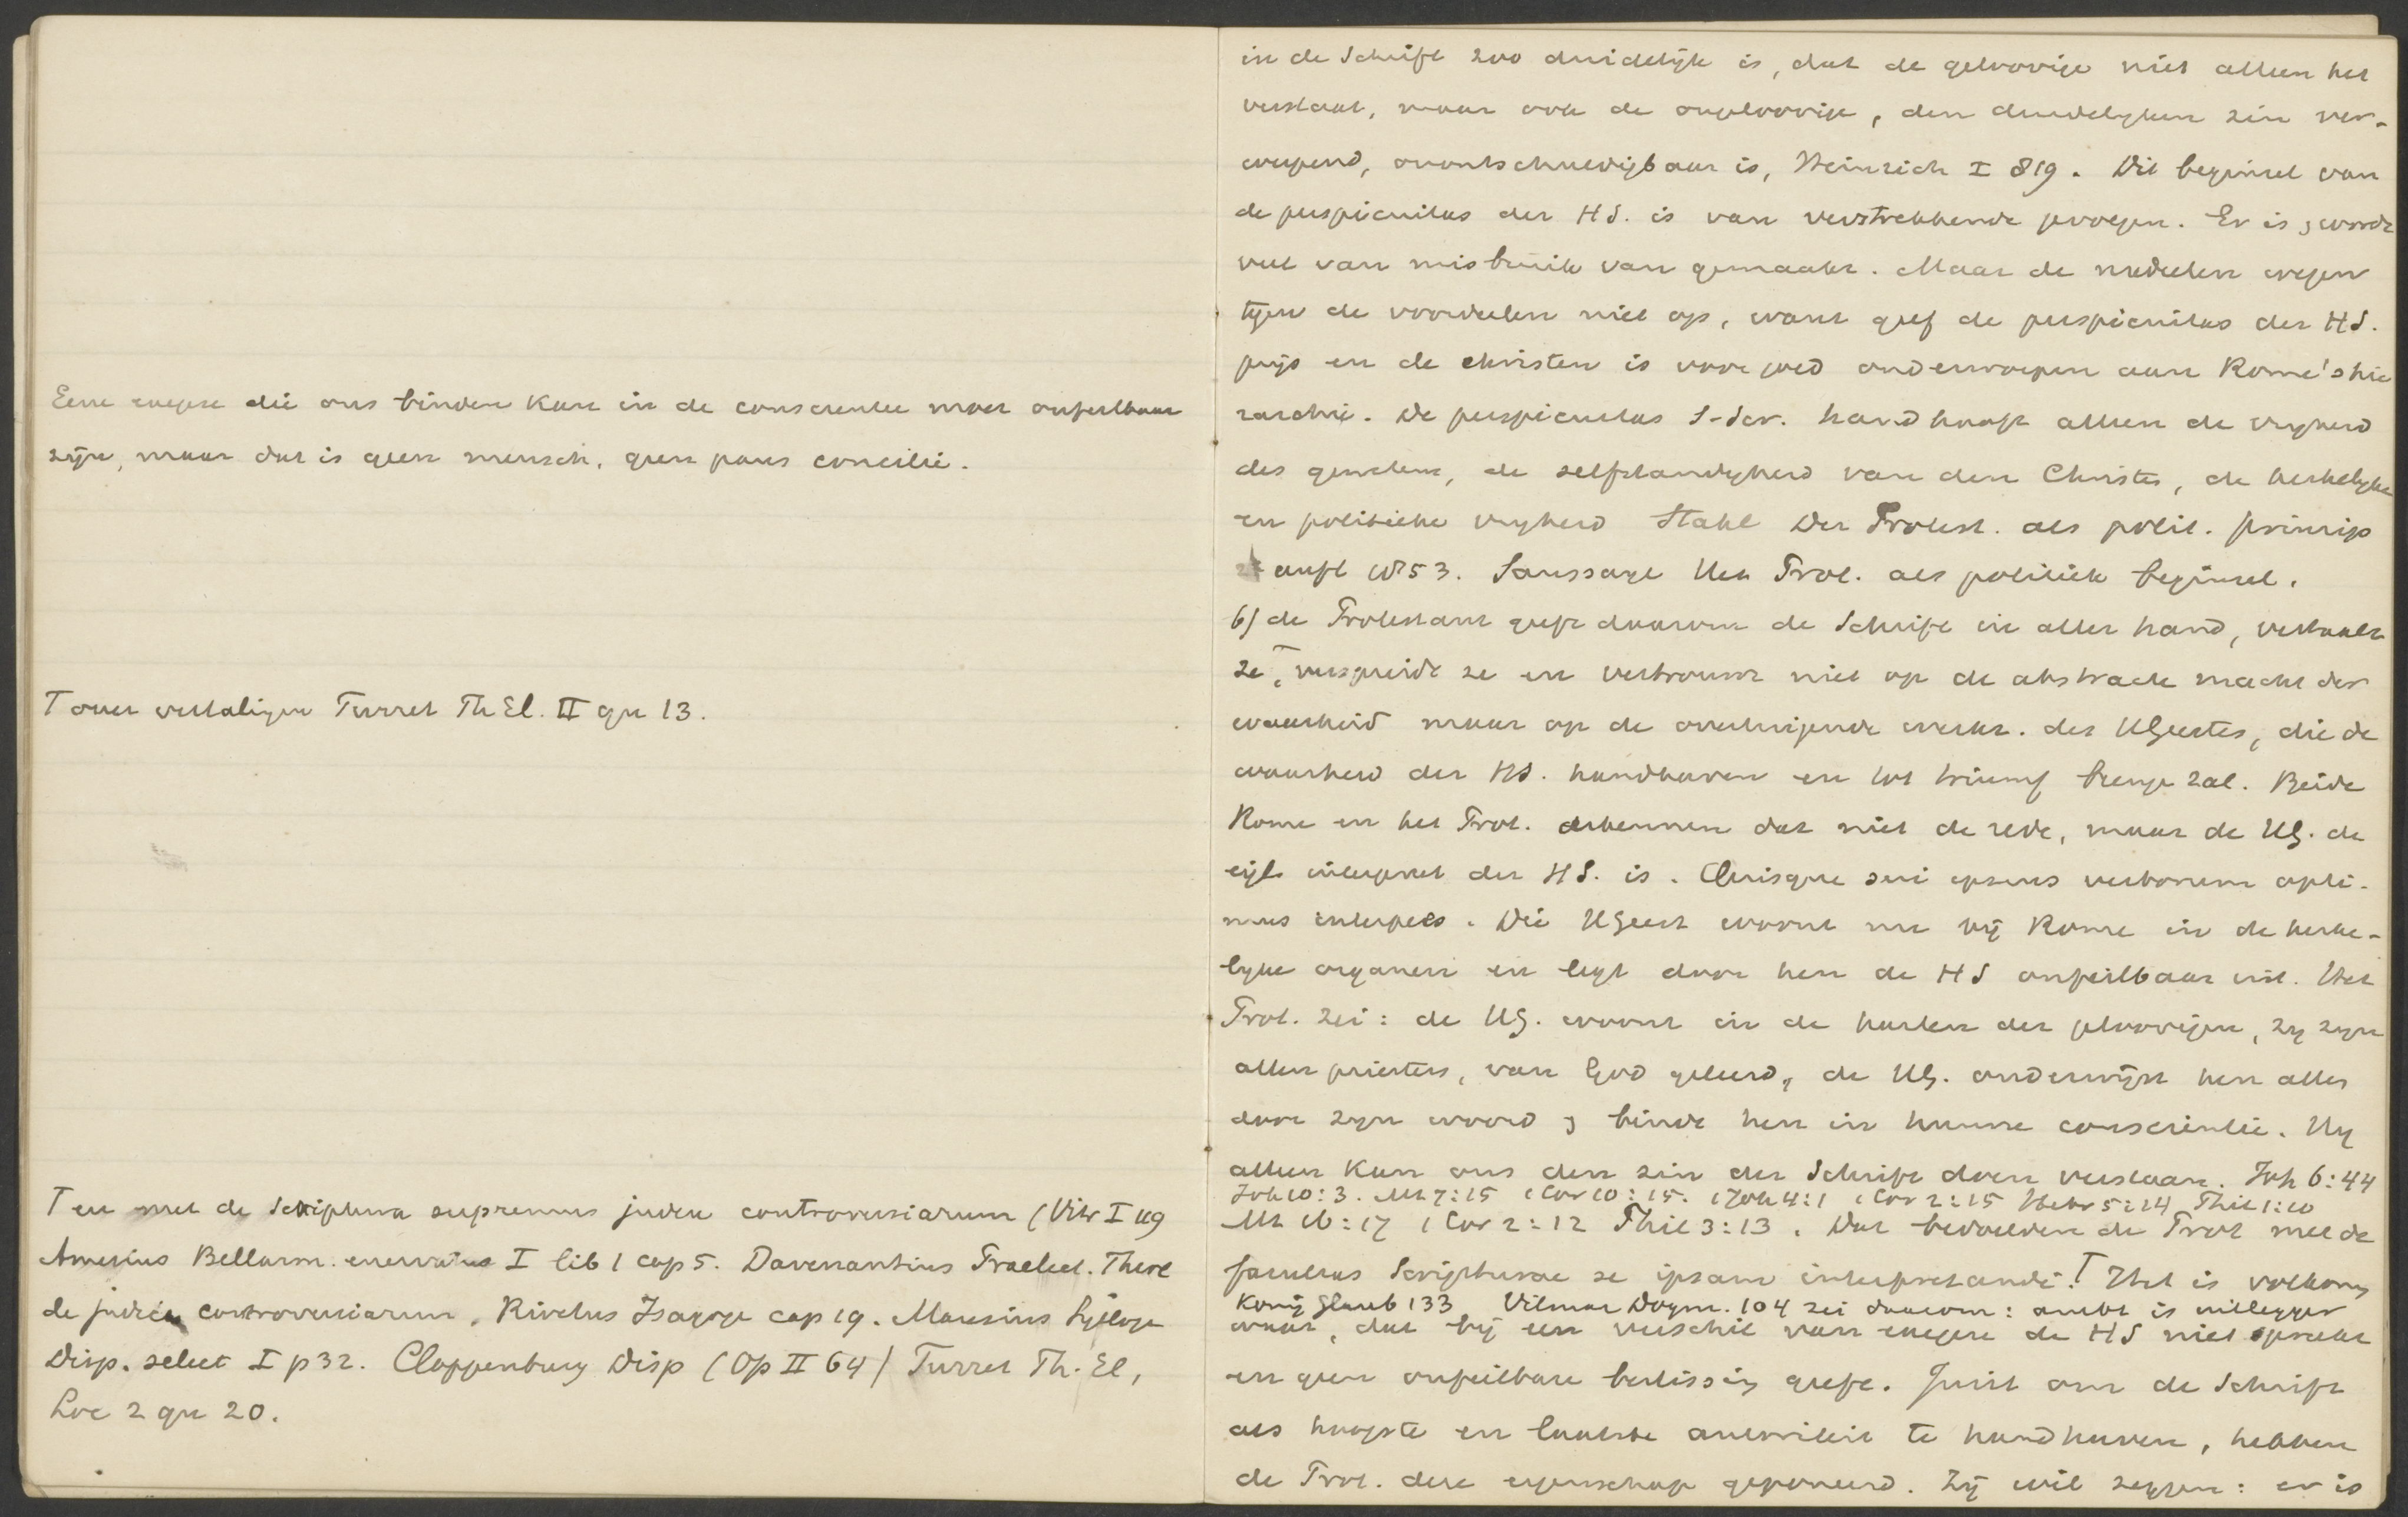 Eene exegese die ons binden kan in de conscientie moet onfeilbaar
zijn, maar dat is geen mensch, geen paus concilie.
T over vertalingen Turret Th El. II qu 13.
T en met de Scriptura supremus judex controversiarum (Vitr I 119
Amesius Bellarm. enervatus I lib 1 cap 5. Davenantius Praelect. Theol
de judice controversiarum, Rivetus Isagoge cap 19. Maresius Sylloge
Disp. select I p 32. Cloppenburg Disp (Op II 64) Turret Th. El,
Loc 2 qu 20.
in de Schrift zoo duidelijk is, dat de geloovige niet alleen het
verstaat, maar ook de ongeloovige, den duidelyken zin ver-
werpend, onontschuldigbaar is, Heinrich I 819. Dit beginsel van
de perspicuitas der HS. is van verstrekkende gevolgen. Er is & wordt
veel van misbruik van gemaakt. Maar de nadeelen wegen
tegen de voordeelen niet op, want geef de perspicuitas der HS.
prijs en de christen is voor goed onderworpen aan Rome's hie
rarchie. De perspicuitas S-Scr. handhaaft alleen de vryheid
des gewetens, de zelfstandigheid van den Christen, de kerkelyke
en politieke vryheid Stahl Der Protest. als polit. Prinzip
2e aufl 1853. Saussaye Het Prot. als politiek beginsel.
6) de Protestant geeft daarom de Schrift in aller hand, vertaalt
ze, T verspreidt ze en vertrouwt niet op de abstracte macht der
waarheid maar op de overtuigende werkz. des HGeestes, die de
waarheid der HS. handhaven en tot triumf brengen zal. Beide
Rome en het Prot. erkennen dat niet de rede, maar de HG. de
eigl. interpret der HS. is. Quisque sui ipsius verborum opti-
mus interpres. Die HGeest woont nu bij Rome in de kerke-
lyke organen en legt door hen de HS onfeilbaar uit. Het
Prot. zei: de HG. woont in de harten der geloovigen, zy zyn
allen priesters, van God geleerd, de HG. onderwijst hen alles
door zyn woord & bindt hen in hunne conscientie. Hy
alleen kan ons den zin der Schrift doen verstaan. Joh 6:44
Joh 10:3. Mt 7:15 1 Cor 10:15. 1 Joh 4:1 1 Cor 2:15 Hebr 5:14 Phil 1:10
Mt 16:17 1 Cor 2:12 Phil 3:13. Dat bedoelden de Prot met de
facultas Scripturae se ipsam interpretandi. T Het is volkomen
König Glaub 133 Vilmar Dogm. 104 zei daarom: ambt is uitlegger
waar, dat bij een verschil van exegese de HS niet spreekt
en geen onfeilbare beslissing geeft. Juist om de Schrift
als hoogste en laatste autoriteit te handhaven, hebben
de Prot. deze eigenschap geponeerd. Zij wil zeggen: er is